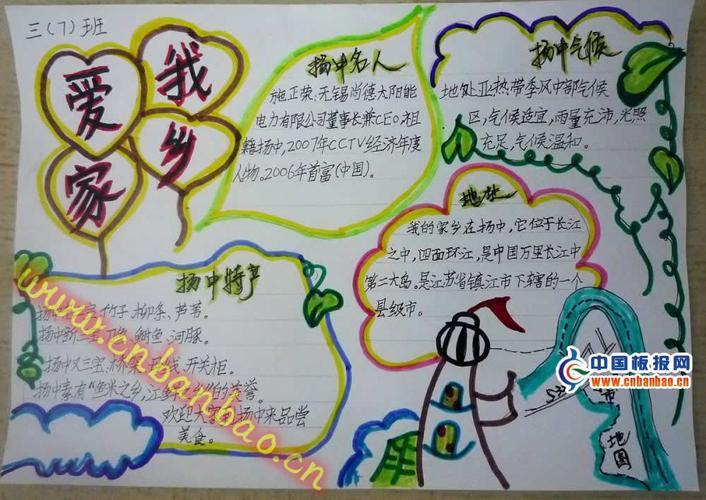 三(7)班
我
爱
乡
家
扬中名人
施正荣:无锡尚德太阳能
电力有限公司董事长兼CEO.祖
籍扬中,2007年CCTV经济年度
人物。2006年首富(中国)。
扬中气候
地处亚热带季风中部气候
区,气候适宜,雨量充沛,光照
充足,气候温和。
地址
我的家乡在扬中,它位于长江
之中,四面环江,是中国万里长江中
第二大岛。是江苏省镇江市下辖的一个
县级市。
扬中特产
竹子、柳条、芦苇。
鲥鱼、河豚。
扬中又三宝:桥架、母线、开关柜。
扬中素有"鱼米之乡,江
欢迎大家
扬中来品尝
美食。
市
地图
中国板报网
www.cnbanbao.cn
www.cnbanbao.cn